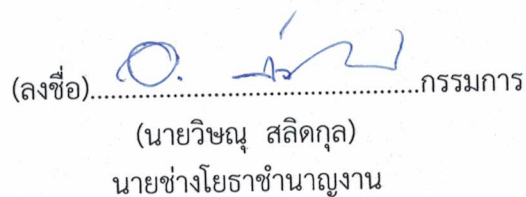 (ลงชื่อ)....................................................กรรมการ
(นายวิษณุ สลิดกุล)
นายช่างโยธาชำนาญงาน